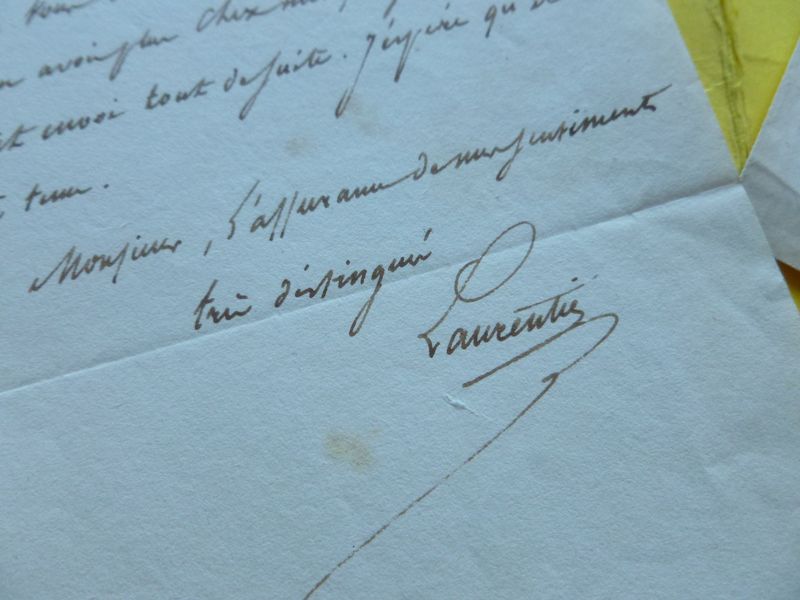 tour
avoir plus chez moi,
envoi tout de suite. J'espère qu'il
tenu.
Monsieur, l'assurance de mes sentiments
très distingués
Laurentie